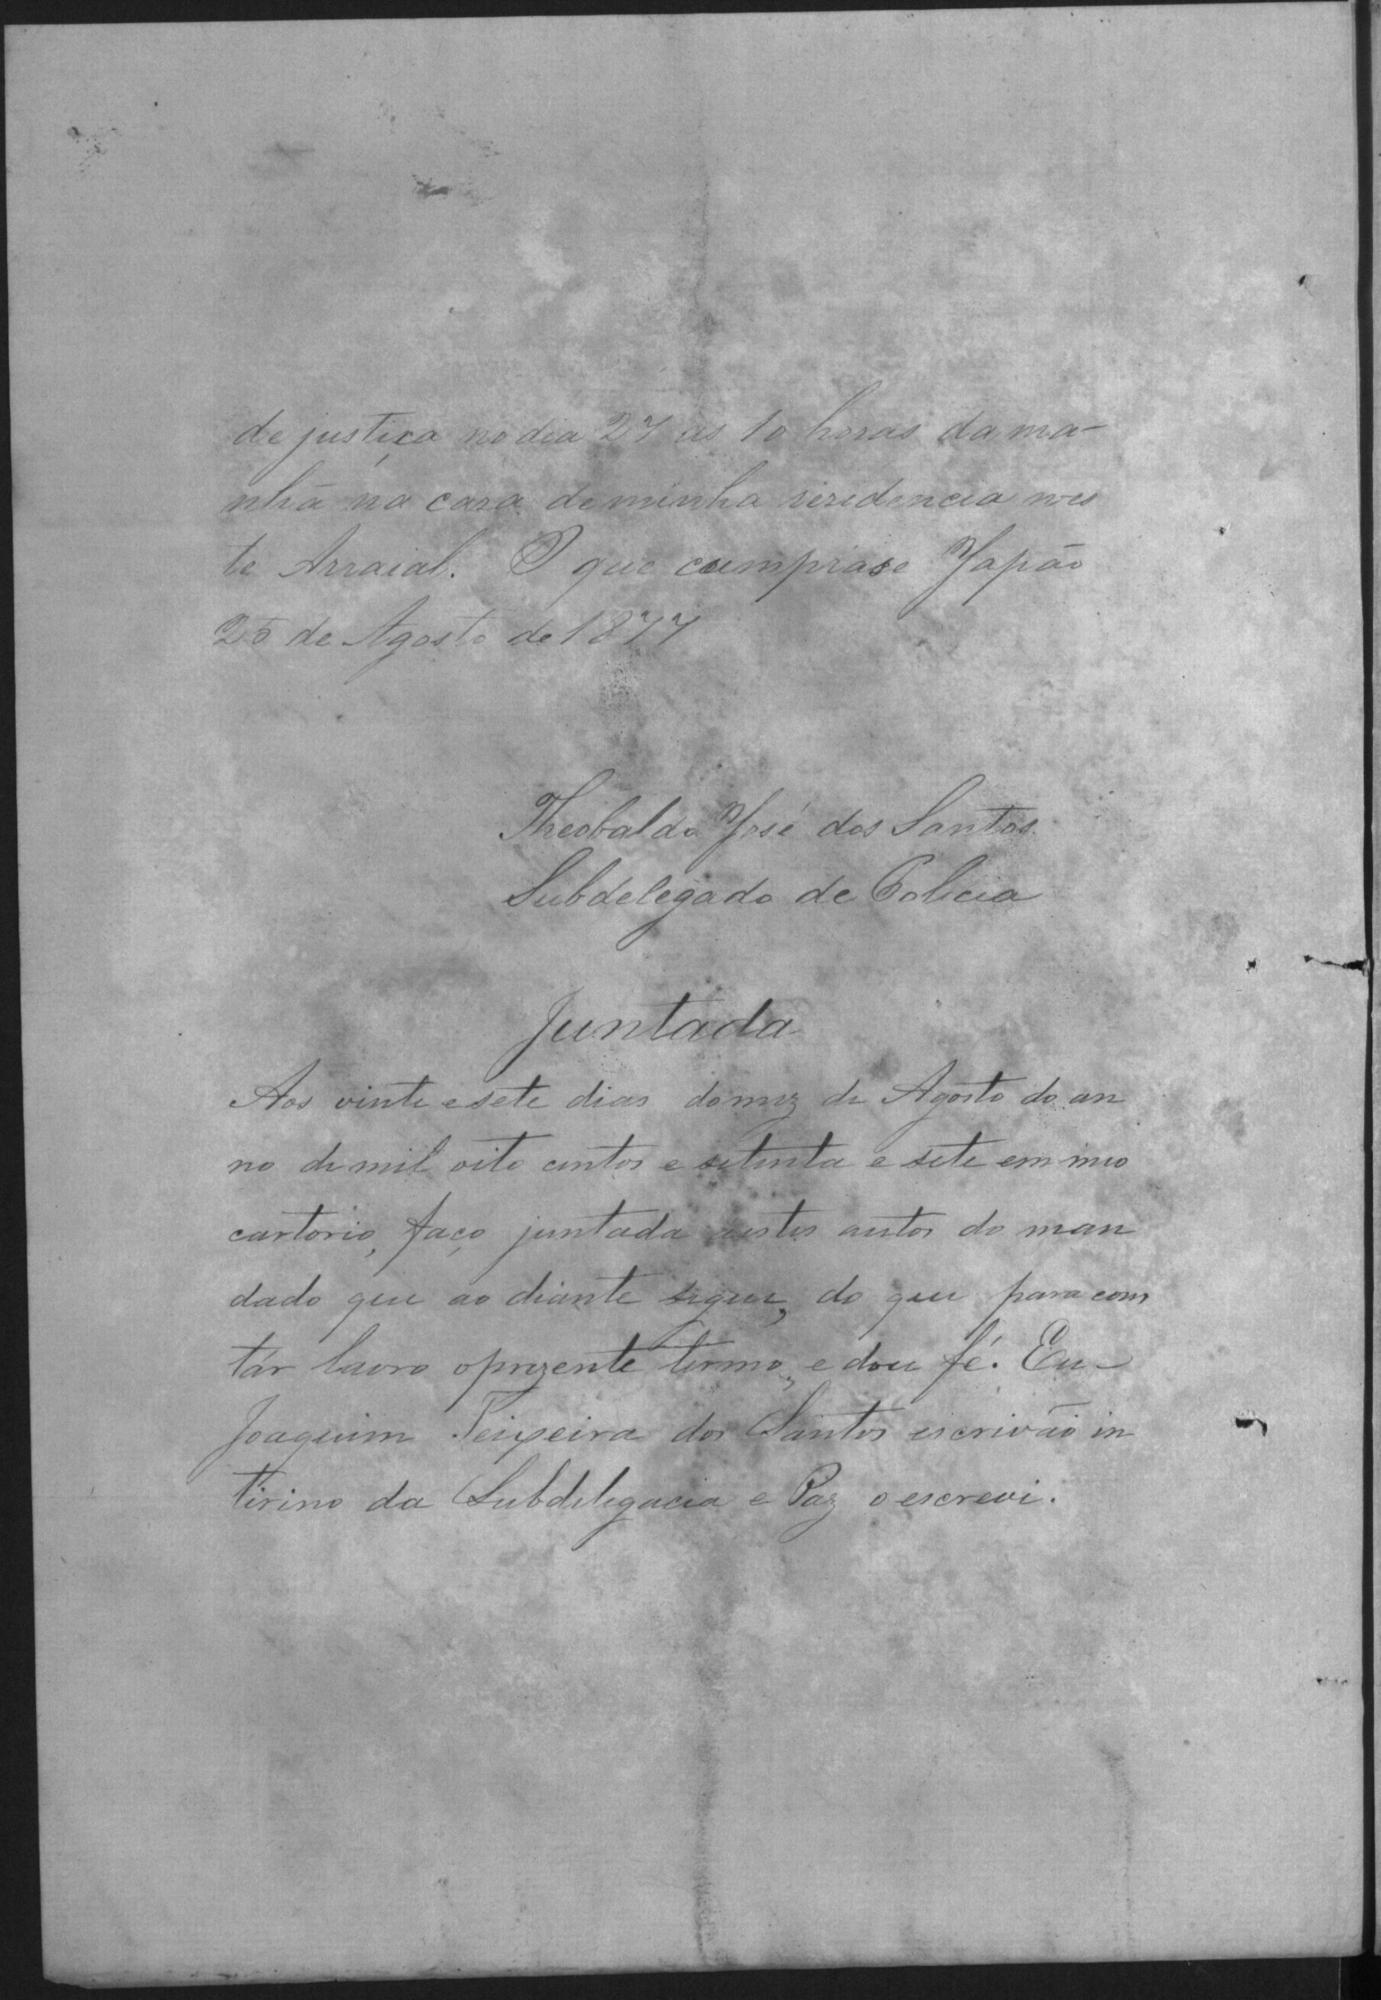 de justiça no dia 27 as 10 horas da ma-
nhã na casa de minha residencia nes
te Arraial. O que cumprase Japão
25 de Agosto de 1877
Theobaldo José dos Santos
Subdelegado de Policia
Juntada
Aos vinte e sete dias do mez de Agosto do an
no de mil oito centos e setenta e sete em meo
cartorio, faço juntada nestes autos do man
dado que ao diante segue, do que para cons
tár lavro o prezente termo, e dou fé. Eu
Joaquim Teixeira dos Santos escrivão in
tirino da Subdelegacia e Paz o escrevi.